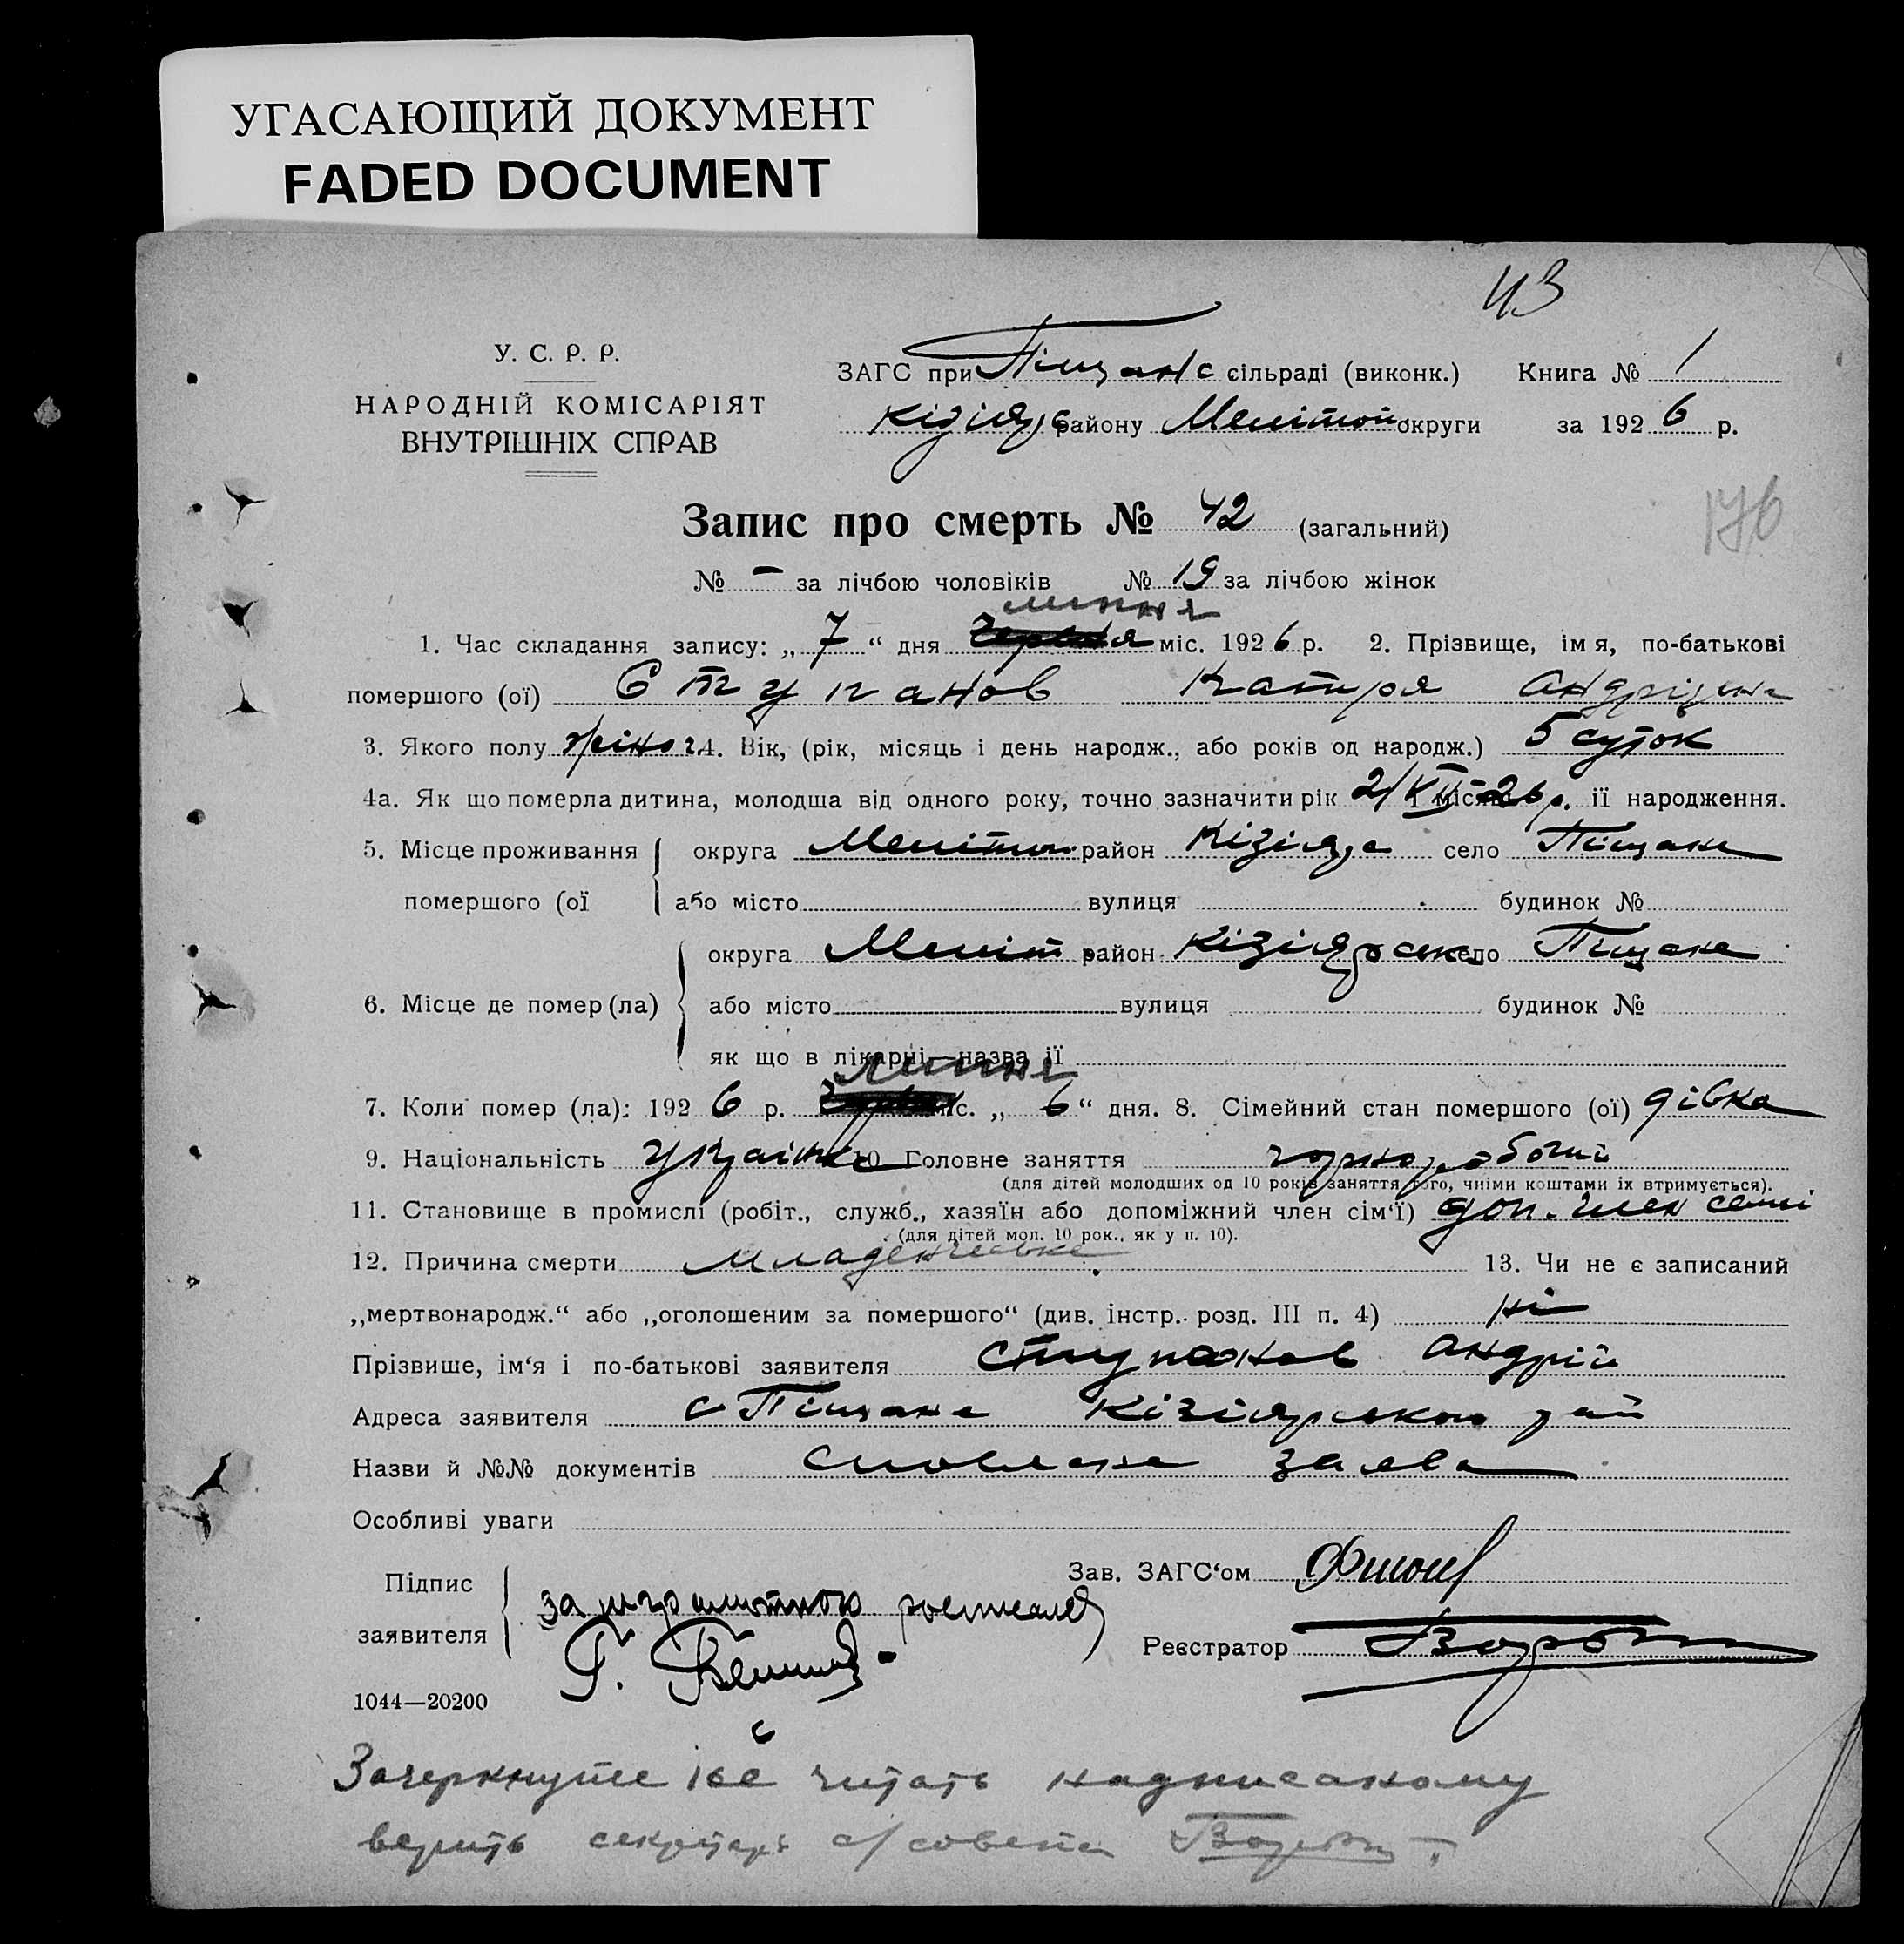 УГАСАЮЩИЙ ДОКУМЕНТ
FADED DOCUMENT
43
У. С. Р. Р.
НАРОДНІЙ КОМІСАРІЯТ
ВНУТРІШНІХ СПРАВ
ЗАГС при Піщанс сільраді (виконк.) Книга № 1
Кізіярс району Меліт округи за 1926 р.
Запис про смерть № 42 (загальний)
176
№ – за лічбою чоловіків № 19 за лічбою жінок
липня
1. Час складання запису: „7“ дня червня міс. 1926 р. 2. Прізвище, імя, по-батькові
помершого (ої) Ступанов Катиря Андріївна
3. Якого полу жіноч. 4. Вік, (рік, місяць і день народж., або років од народж.) 5 суток
4а. Як що померла дитина, молодша від одного року, точно зазначити рік і місяць 2/VII-26 р. її народження.
5. Місце проживання помершого (ої округа Меліт район Кізіярс село Піщане
або місто вулиця будинок №
6. Місце де помер (ла) округа Меліт район Кізіярське село Піщане
або місто вулиця будинок №
як що в лікарні—назва її
липня
7. Коли помер (ла): 1926 р. червня міс. „6“ дня. 8. Сімейний стан помершого (ої) дівка
9. Національність українка 10 Головне заняття чорноробочий
(для дітей молодших од 10 років заняття того, чиїми коштами їх втримується).
11. Становище в промислі (робіт., служб., хазяїн або допоміжний член сім‘ї) доп. член семї
(для дітей мол. 10 рок., як у п. 10).
12. Причина смерти младенческе 13. Чи не є записаний
„мертвонародж.“ або „оголошеним за помершого“ (див. інстр. розд. III п. 4) ні
Прізвише, ім‘я і по-батькові заявителя Ступанов Андрій
Адреса заявителя с Піщане Кізіярського рай
Назви й №№ документів словесна заява
Особливі уваги
Підпис заявителя за неграмотного росписался
Зав. ЗАГС‘ом
Реєстратор
1044—20200
Зачеркнутое не читать надписаному
верить секретарь с/совета